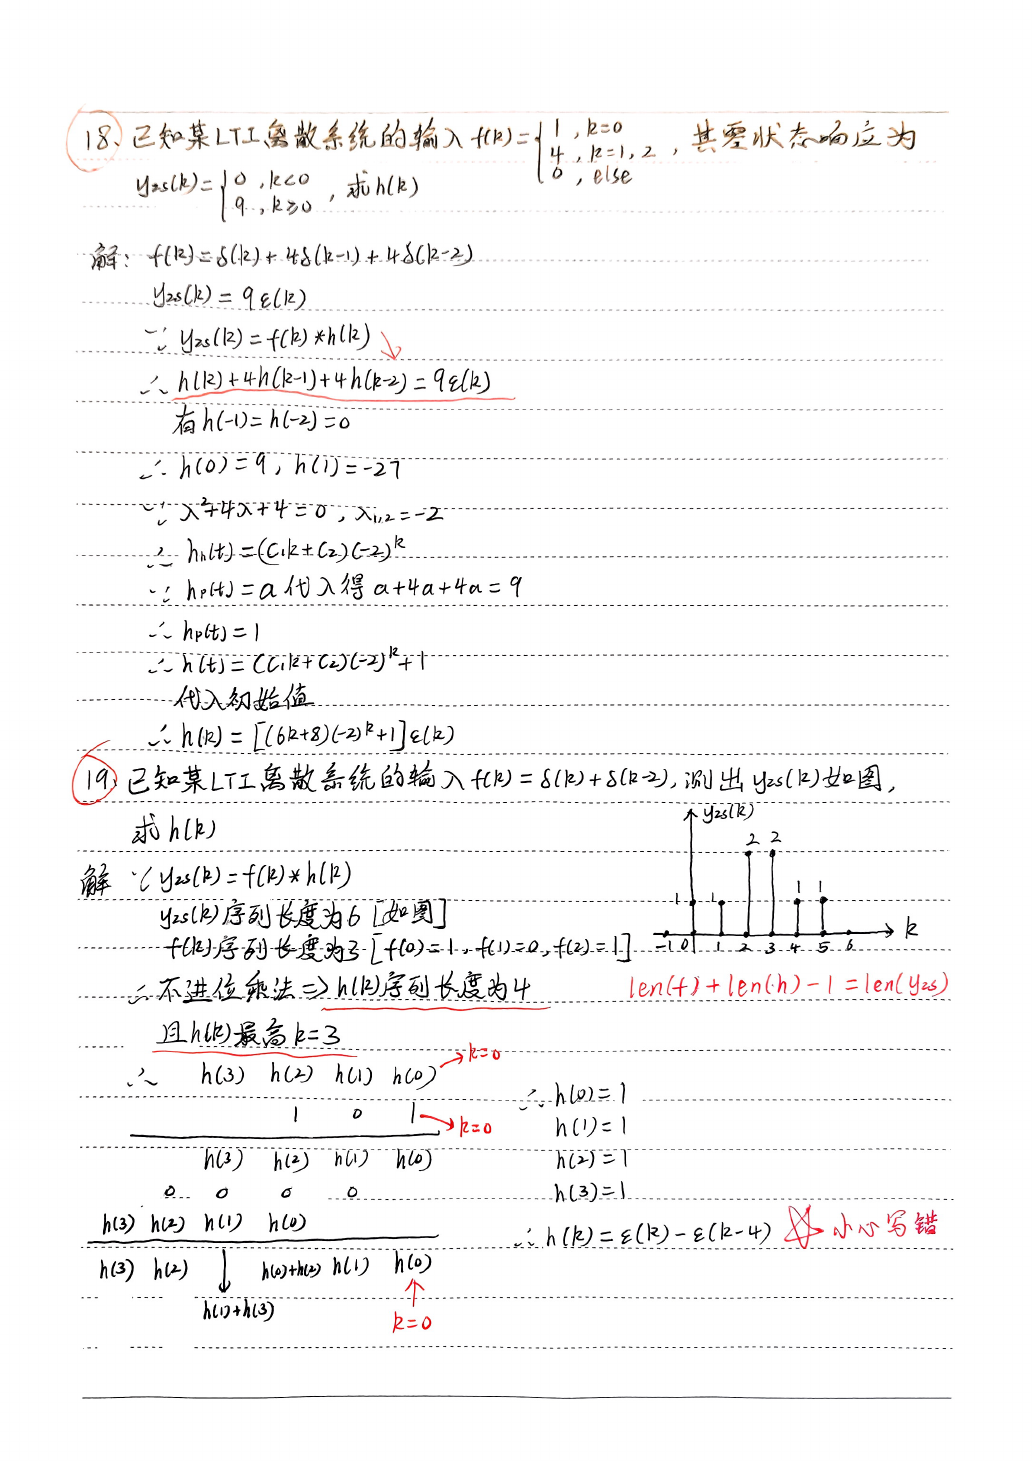 18、已知某LTI离散系统的输入f(k)={1, k=0
4, k=1, 2 , 其零状态响应为
0, else
yzs(k)={0, k<0 , 求h(k)
9, k≥0
解: f(k)=δ(k)+4δ(k-1)+4δ(k-2)
yzs(k)=9ε(k)
∵ yzs(k)=f(k)*h(k)
∴ h(k)+4h(k-1)+4h(k-2)=9ε(k)
有h(-1)=h(-2)=0
∴ h(0)=9, h(1)=-27
∵ λ²+4λ+4=0, λ1,2=-2
∴ hh(t)=(C1k+C2)(-2)^k
∵ hp(t)=a 代入得 a+4a+4a=9
∴ hp(t)=1
∴ h(t)=(C1k+C2)(-2)^k+1
代入初始值
∴ h(k)=[(6k+8)(-2)^k+1]ε(k)
19、已知某LTI离散系统的输入f(k)=δ(k)+δ(k-2), 测出yzs(k)如图,
求h(k)
yzs(k)
2 2
1 1 1 1
-1 0 1 2 3 4 5 6 k
解 ∵ yzs(k)=f(k)*h(k)
yzs(k)序列长度为6 [如图]
f(k)序列长度为3 [f(0)=1, f(1)=0, f(2)=1]
∴ 不进位乘法⇒h(k)序列长度为4
len(f)+len(h)-1=len(yzs)
且h(k)最高k=3
∴ h(3) h(2) h(1) h(0) →k=0
1 0 1 →k=0
h(3) h(2) h(1) h(0)
0 0 0 0
h(3) h(2) h(1) h(0)
h(3) h(2) ↓ h(0)+h(2) h(1) h(0)
h(1)+h(3)
↑
k=0
∴ h(0)=1
h(1)=1
h(2)=1
h(3)=1
∴ h(k)=ε(k)-ε(k-4) ☆小心写错